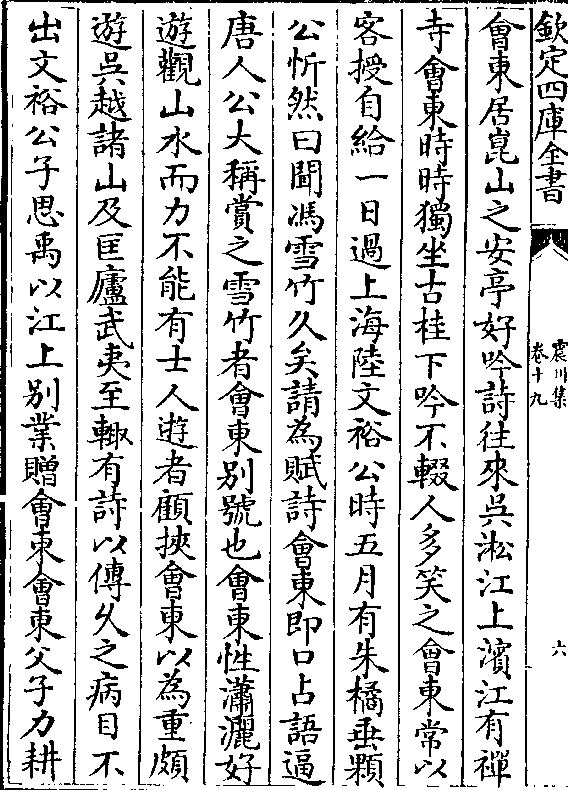 欽定四庫全書
震川集
卷十九
六
會東居崑山之安亭好吟詩往來吳淞江上濵江有禪
寺會東時時獨坐古桂下吟不輟人多笑之會東常以
客授自給一日過上海陸文裕公時五月有朱橘垂顆
公忻然曰聞馮雪竹久矣請為賦詩會東即口占語逼
唐人公大稱賞之雪竹者會東别號也會東性瀟灑好
遊觀山水而力不能有士人遊者顧挾會東以為重頗
遊吳越諸山及匡廬武夷至輙有詩以傳乆之病目不
出文裕公子思禹以江上别業贈會東會東父子力耕